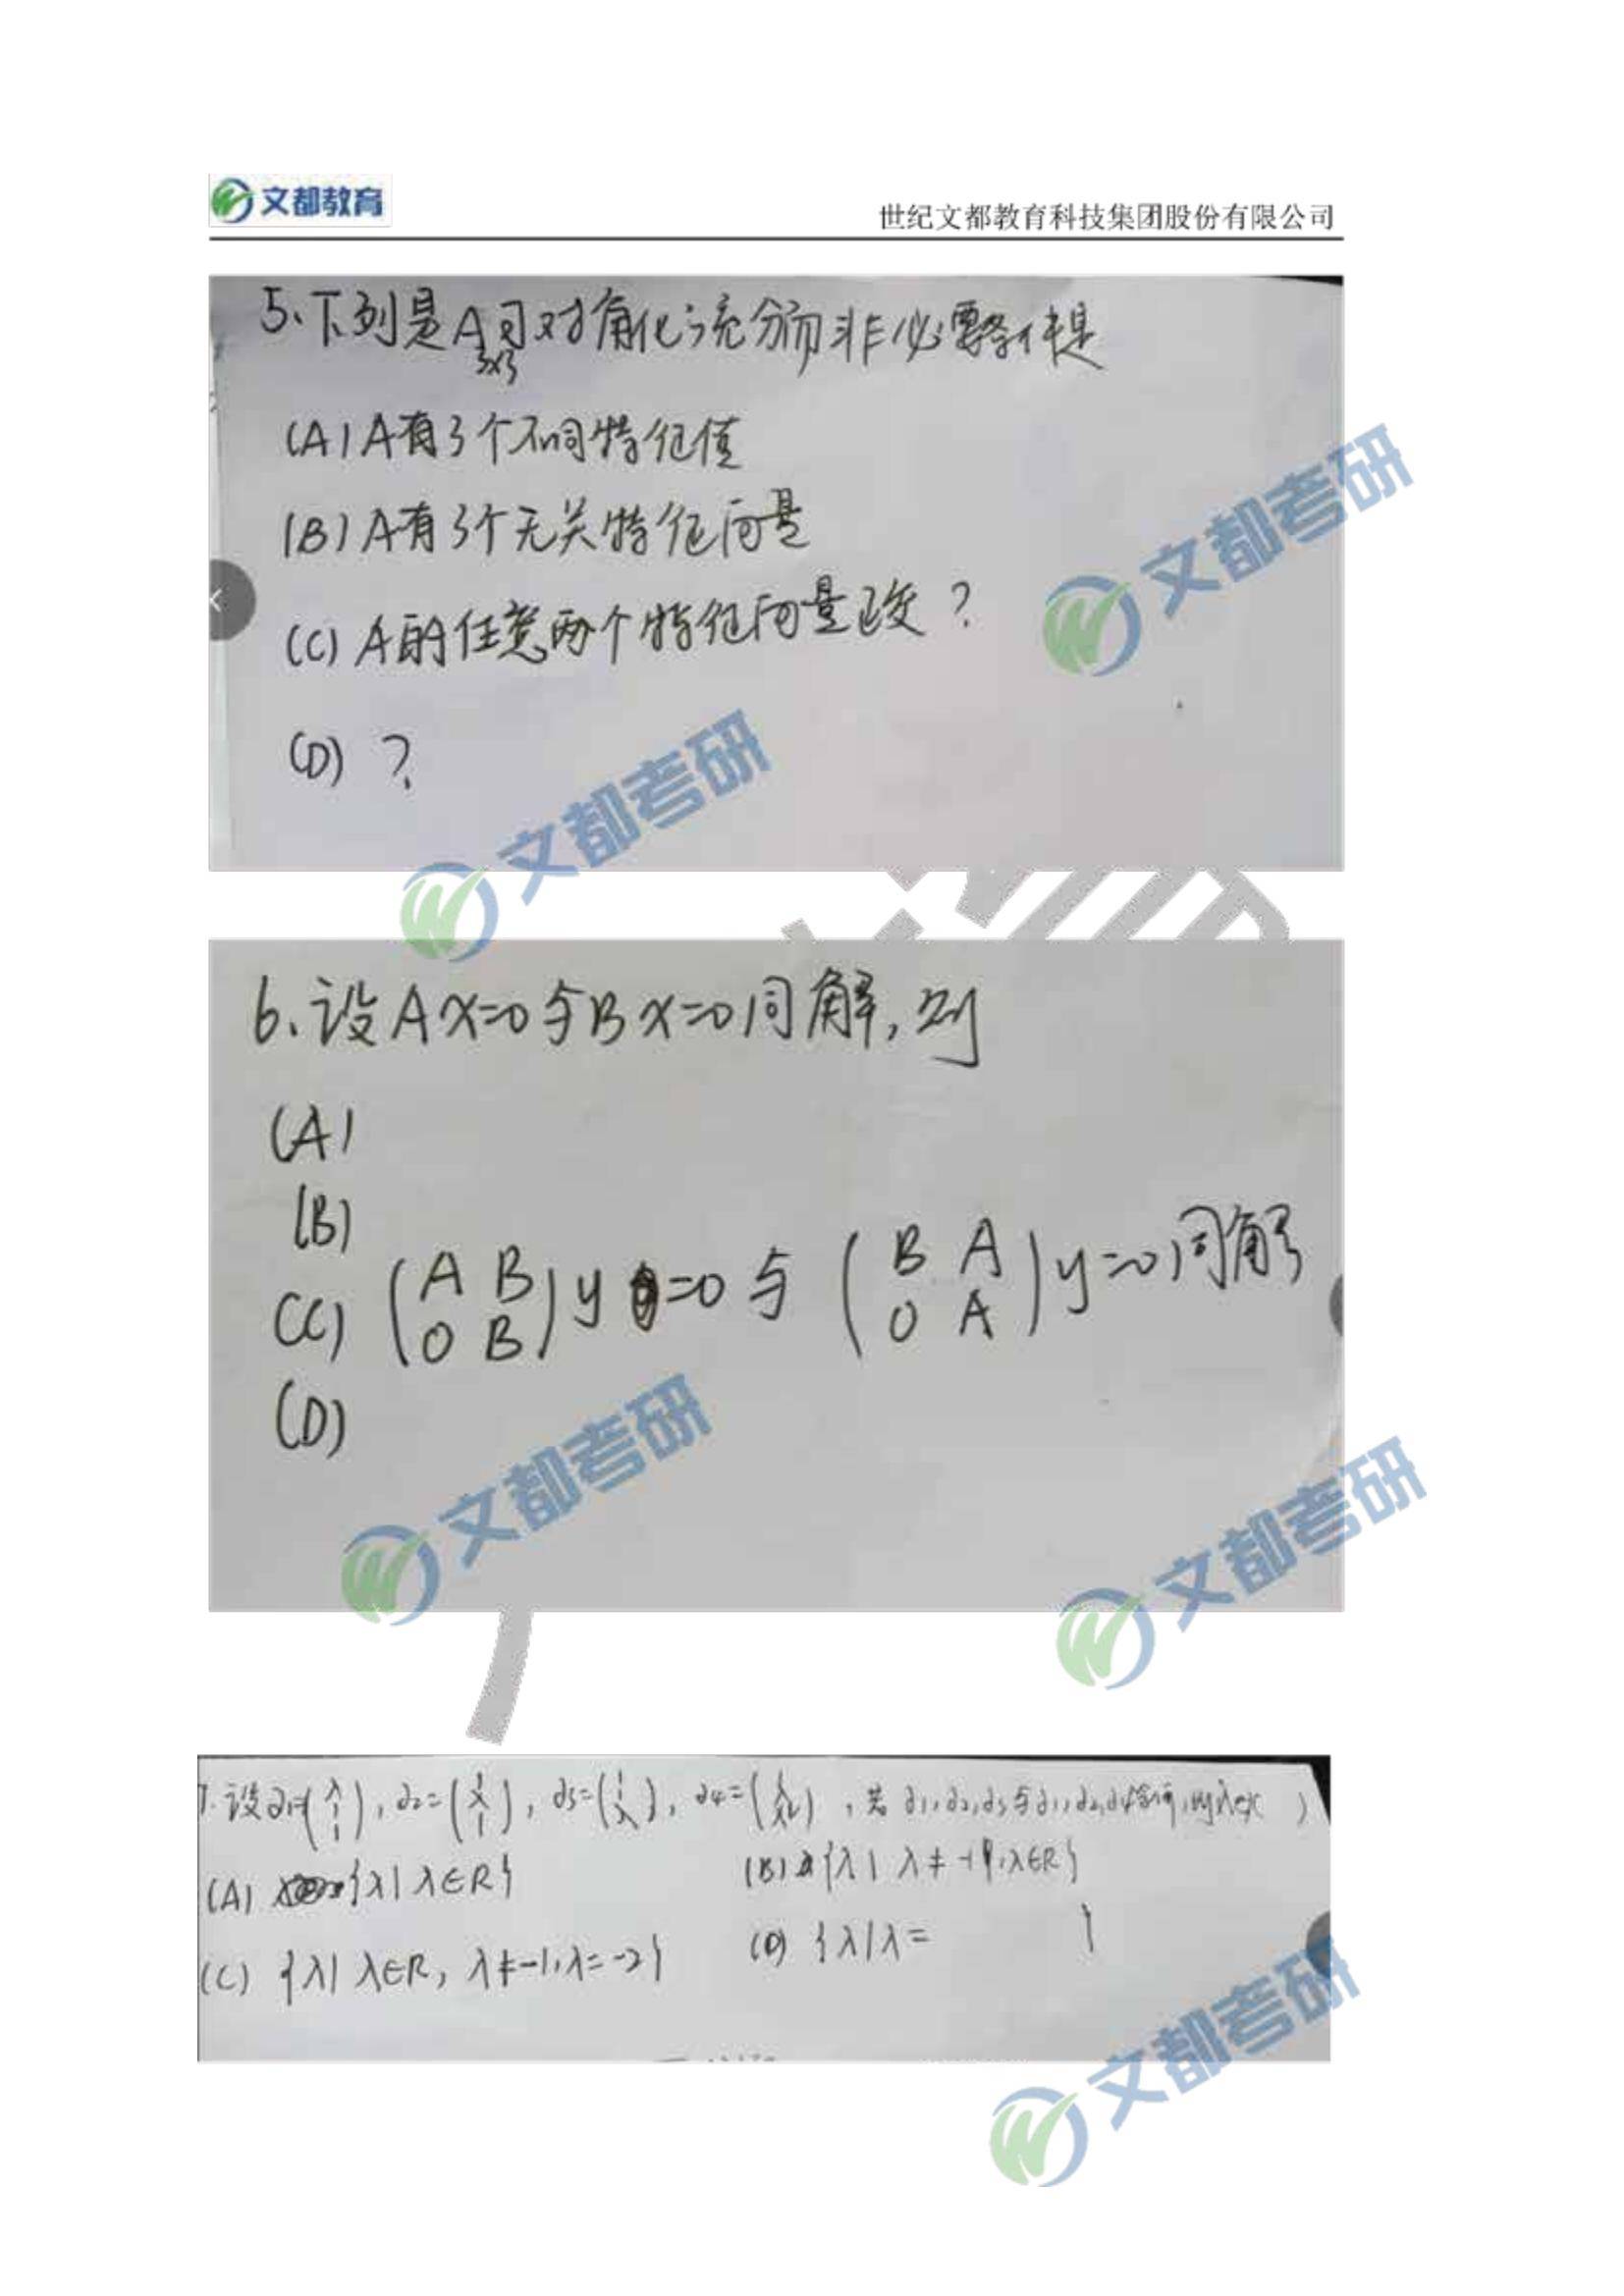 文都教育
世纪文都教育科技集团股份有限公司
5、下列是A可对角化充分而非必要条件是
3×3
(A) A有3个不同特征值
(B) A有3个无关特征向量
(C) A的任意两个特征向量正交?
(D) ?
文都考研
文都考研
6、设Ax=0与Bx=0同解,则
(A)
(B)
(C) (A B
0 B) y =0 与 (B A
0 A) y=0同解
(D)
文都考研
文都考研
7. 设α1=(λ 1 1), α2=(1 λ 1), α3=(1 1 λ), α4=(1 λ λ²), 若 α1,α2,α3与α1,α2,α4等价,则λ∈( )
(A) {λ| λ∈R}
(B) {λ| λ≠-1,λ∈R}
(C) {λ| λ∈R, λ≠-1,λ=-2}
(D) {λ|λ= }
文都考研